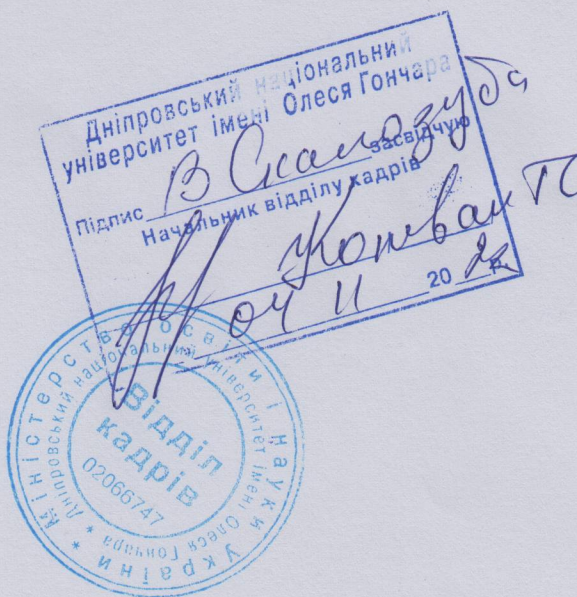 Дніпровський національний
університет імені Олеся Гончара
Підпис В Скалозуба засвідчую
Начальник відділу кадрів
04 11 20
Міністерство освіти і науки України *
Дніпровський національний університет імені Олеся Гончара *
Відділ
кадрів
02066747